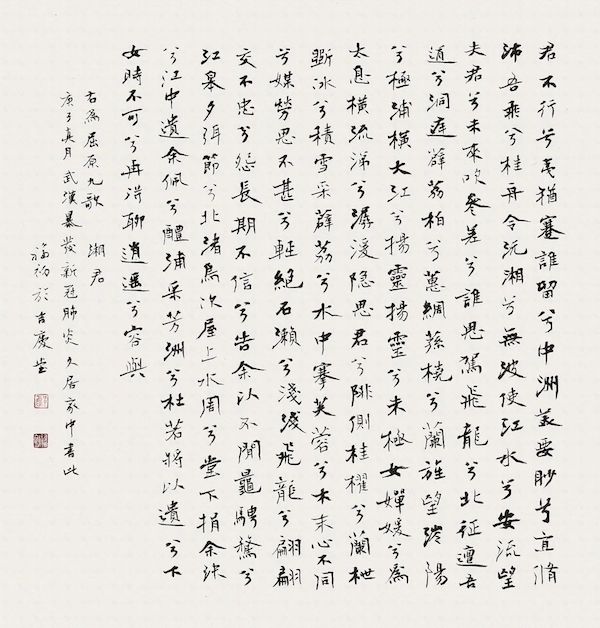 君不行兮夷猶蹇誰留兮中洲美要眇兮宜脩
沛吾乘兮桂舟令沅湘兮無波使江水兮安流望
夫君兮未來吹參差兮誰思駕飛龍兮北征邅吾
道兮洞庭薜荔柏兮蕙綢蓀橈兮蘭旌望涔陽
兮極浦橫大江兮揚靈揚靈兮未極女嬋媛兮為
太息橫流涕兮潺湲隱思君兮陫側桂櫂兮蘭枻
斲冰兮積雪采薜荔兮水中搴芙蓉兮木末心不同
兮媒勞恩不甚兮輕絕石瀨兮淺淺飛龍兮翩翩
交不忠兮怨長期不信兮告余以不閒鼂騁騖兮
江皋夕弭節兮北渚鳥次屋上水周兮堂下捐余玦
兮江中遺余佩兮醴浦采芳洲兮杜若將以遺兮下
女時不可兮再得聊逍遙兮容與
右為屈原九歌 湘君
庚子真月武漢暴發新冠肺炎久居家中書此
福初於吉慶堂